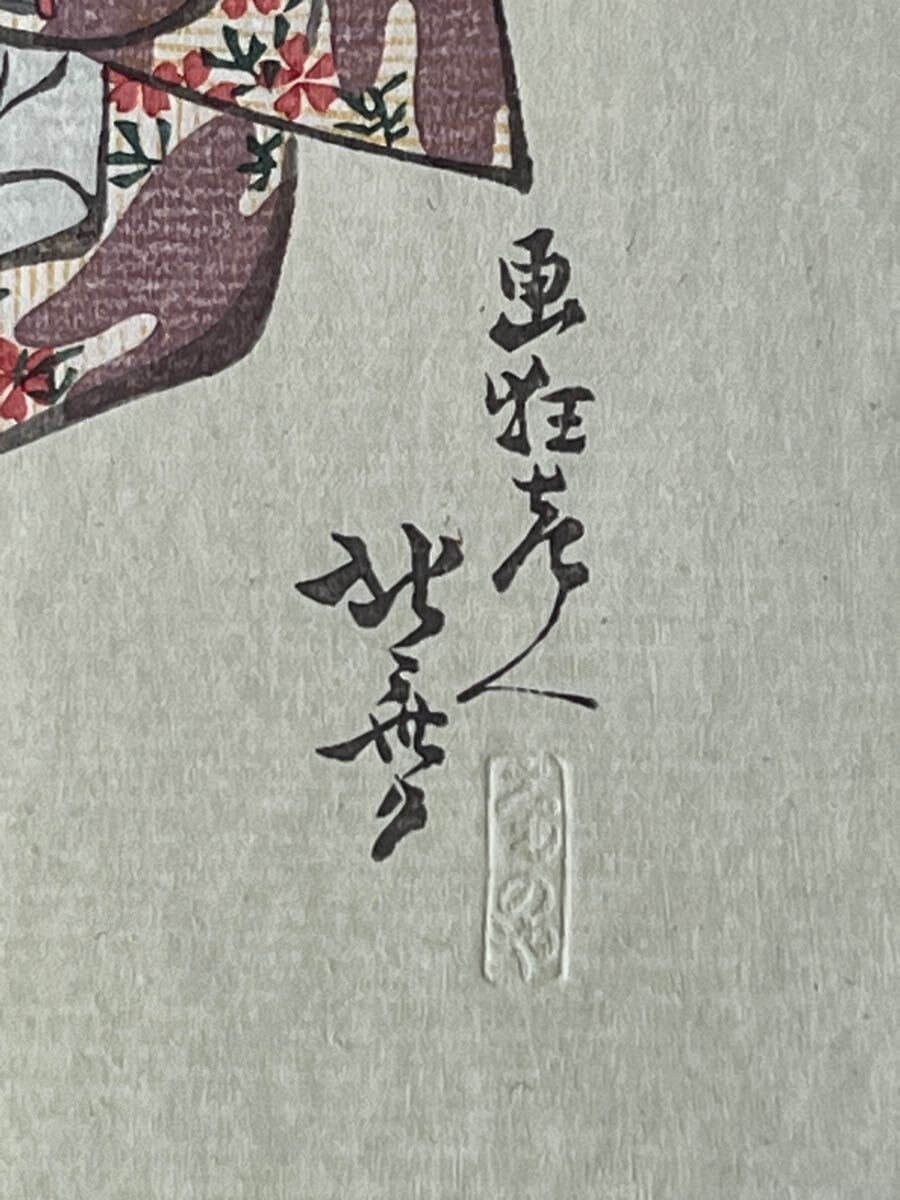 画狂老人
北斎